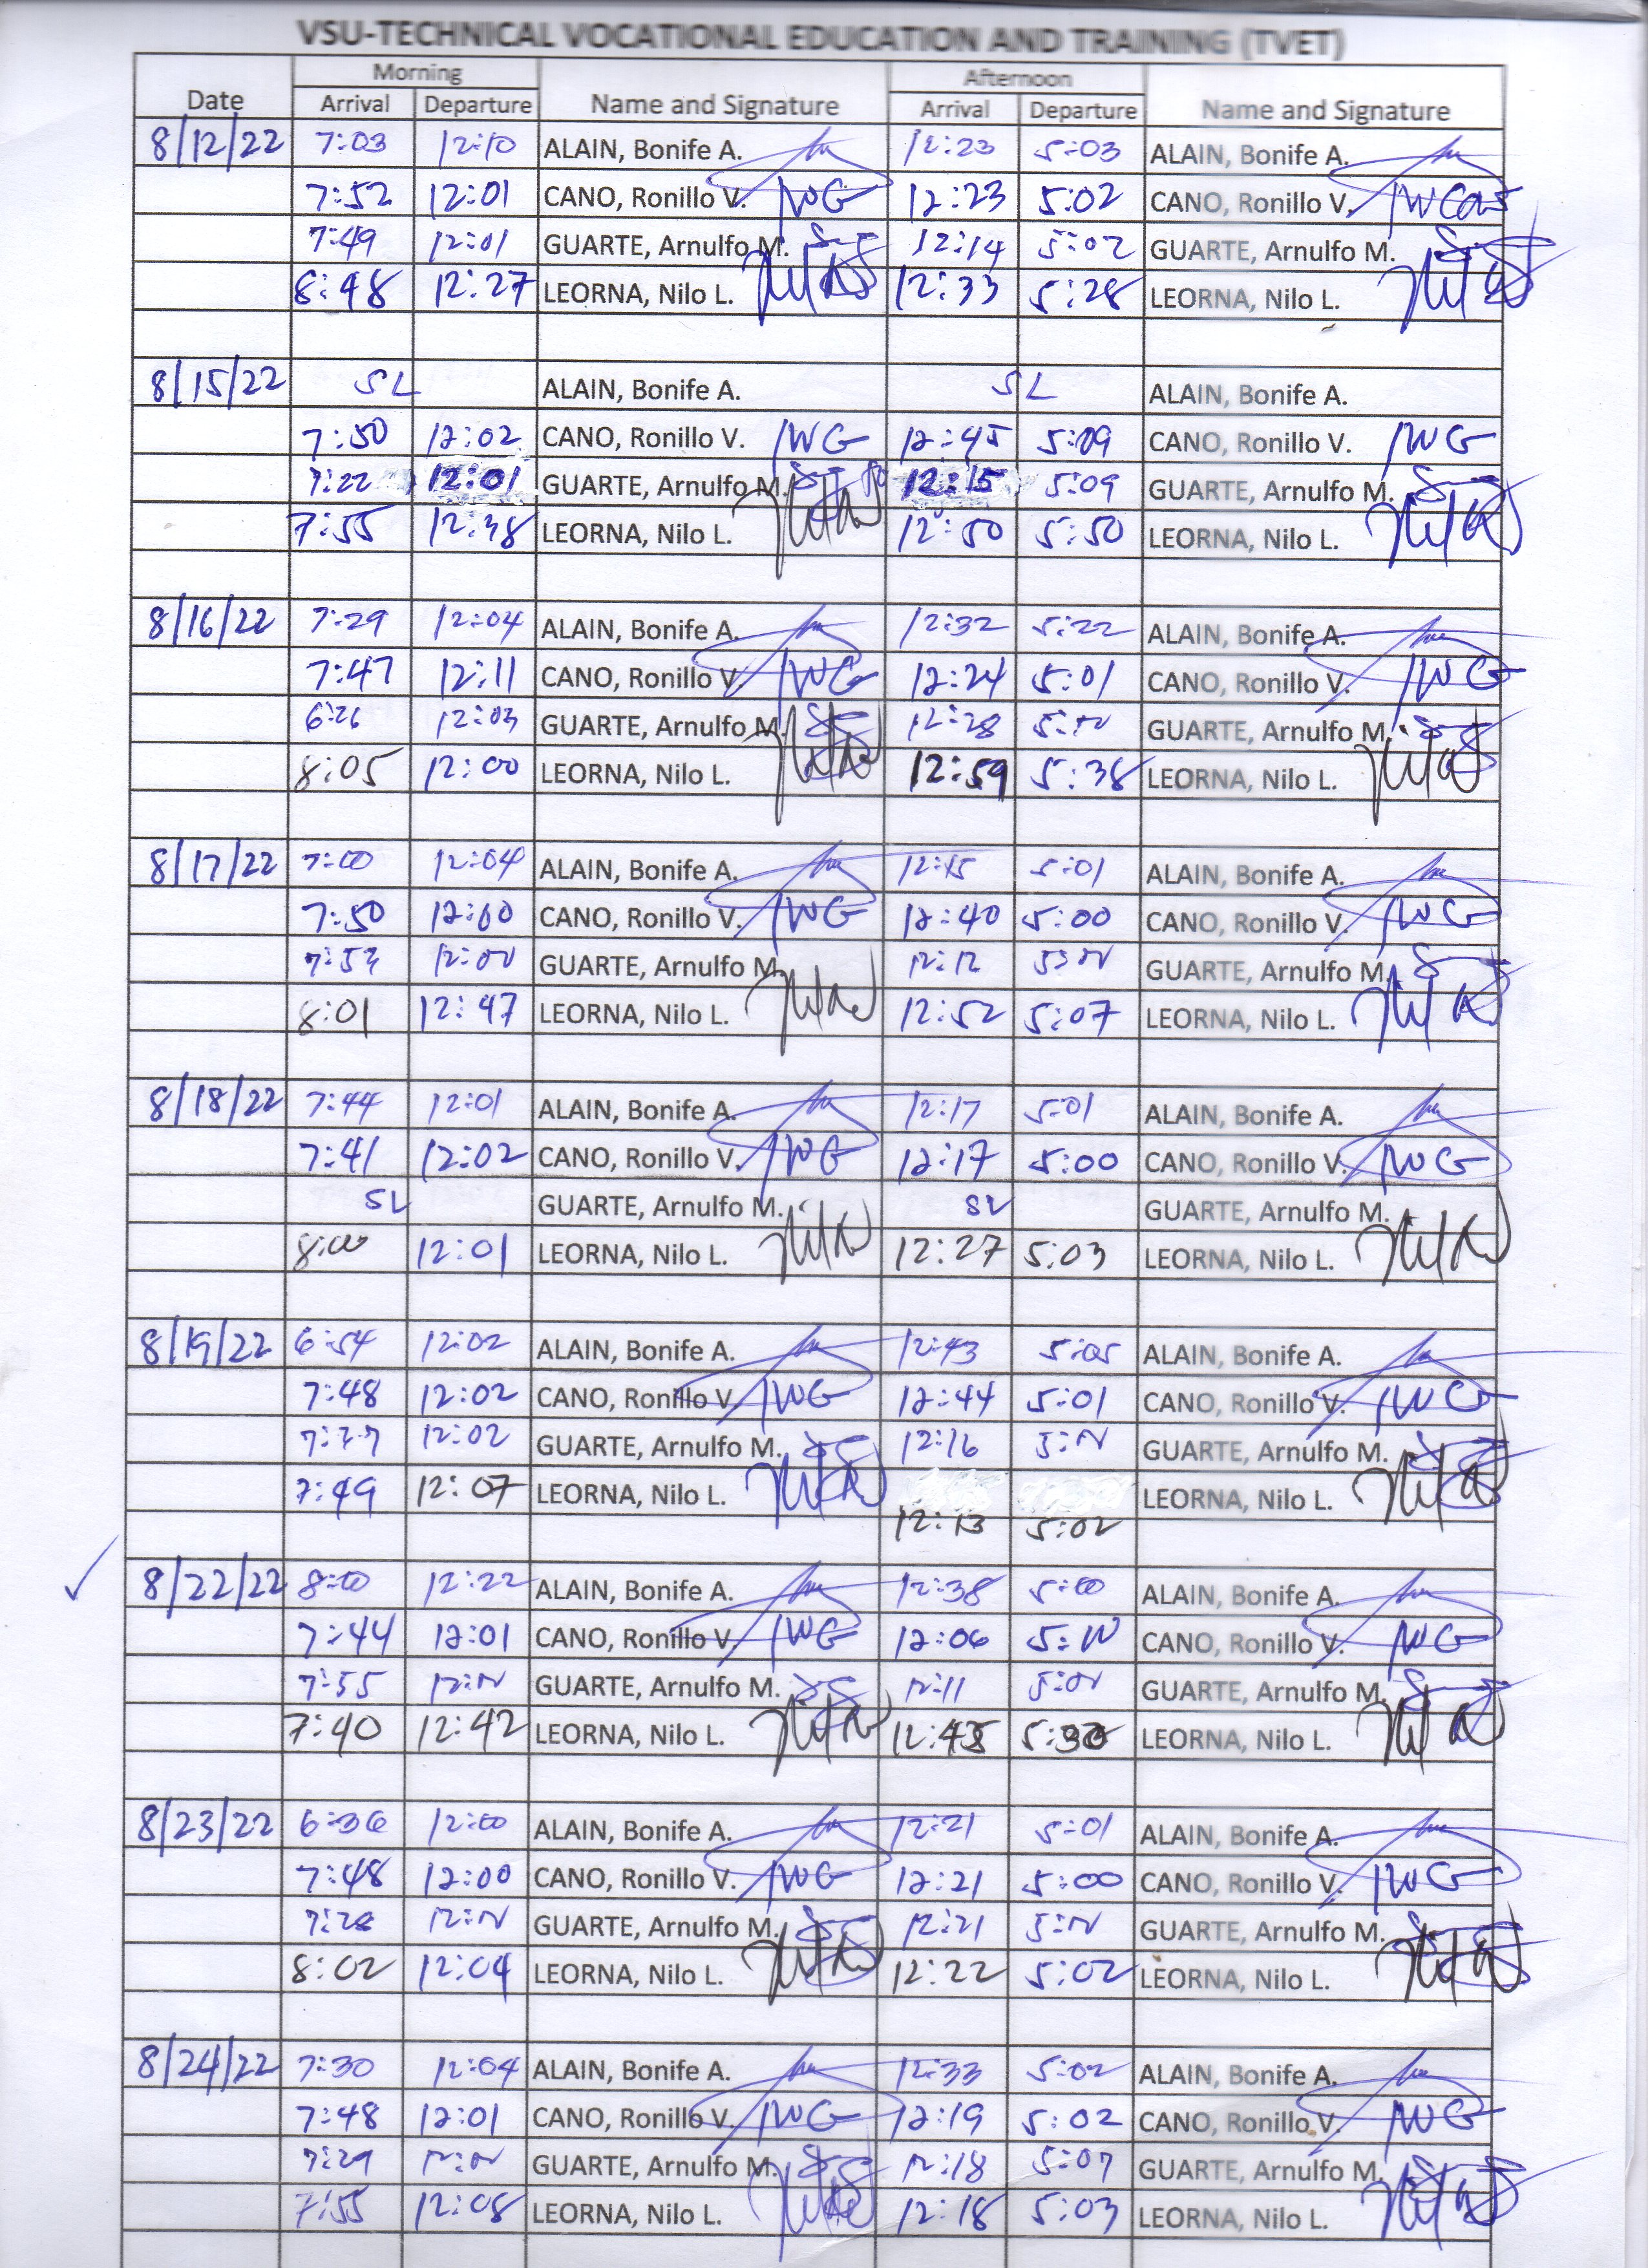 VSU-TECHNICAL VOCATIONAL EDUCATION AND TRAINING (TVET)
Morning Afternoon
Date Arrival Departure Name and Signature Arrival Departure Name and Signature
8/12/22 7:03 12:10 ALAIN, Bonife A. 12:23 5:03 ALAIN, Bonife A.
7:52 12:01 CANO, Ronillo V. 12:23 5:02 CANO, Ronillo V.
7:49 12:01 GUARTE, Arnulfo M. 12:14 5:02 GUARTE, Arnulfo M.
8:48 12:27 LEORNA, Nilo L. 12:33 5:28 LEORNA, Nilo L.
8/15/22 SL ALAIN, Bonife A. SL ALAIN, Bonife A.
7:50 12:02 CANO, Ronillo V. 12:45 5:09 CANO, Ronillo V.
7:22 12:01 GUARTE, Arnulfo M. 12:15 5:09 GUARTE, Arnulfo M.
7:55 12:38 LEORNA, Nilo L. 12:50 5:50 LEORNA, Nilo L.
8/16/22 7:29 12:04 ALAIN, Bonife A. 12:32 5:22 ALAIN, Bonife A.
7:47 12:11 CANO, Ronillo V. 12:24 5:01 CANO, Ronillo V.
6:26 12:03 GUARTE, Arnulfo M. 12:28 GUARTE, Arnulfo M.
8:05 12:00 LEORNA, Nilo L. 12:59 5:38 LEORNA, Nilo L.
8/17/22 7:00 12:04 ALAIN, Bonife A. 12:15 5:01 ALAIN, Bonife A.
7:50 12:00 CANO, Ronillo V. 12:40 5:00 CANO, Ronillo V.
12:00 GUARTE, Arnulfo M. 12:12 GUARTE, Arnulfo M.
8:01 12:47 LEORNA, Nilo L. 12:52 5:07 LEORNA, Nilo L.
8/18/22 7:44 12:01 ALAIN, Bonife A. 12:17 5:01 ALAIN, Bonife A.
7:41 12:02 CANO, Ronillo V. 12:17 5:00 CANO, Ronillo V.
SL GUARTE, Arnulfo M. SL GUARTE, Arnulfo M.
8:00 12:01 LEORNA, Nilo L. 12:27 5:03 LEORNA, Nilo L.
8/19/22 6:54 12:02 ALAIN, Bonife A. 12:43 5:05 ALAIN, Bonife A.
7:48 12:02 CANO, Ronillo V. 12:44 5:01 CANO, Ronillo V.
12:02 GUARTE, Arnulfo M. 12:16 GUARTE, Arnulfo M.
7:49 12:07 LEORNA, Nilo L. LEORNA, Nilo L.
12:13 5:02
8/22/22 8:00 12:22 ALAIN, Bonife A. 12:38 5:00 ALAIN, Bonife A.
7:44 12:01 CANO, Ronillo V. 12:06 CANO, Ronillo V.
7:55 GUARTE, Arnulfo M. 12:11 GUARTE, Arnulfo M.
7:40 12:42 LEORNA, Nilo L. LEORNA, Nilo L.
8/23/22 6:36 12:00 ALAIN, Bonife A. 12:21 5:01 ALAIN, Bonife A.
7:48 12:00 CANO, Ronillo V. 12:21 5:00 CANO, Ronillo V.
7:28 GUARTE, Arnulfo M. 12:21 GUARTE, Arnulfo M.
8:02 12:04 LEORNA, Nilo L. 12:22 5:02 LEORNA, Nilo L.
8/24/22 7:30 12:04 ALAIN, Bonife A. 12:33 5:02 ALAIN, Bonife A.
7:48 12:01 CANO, Ronillo V. 12:19 5:02 CANO, Ronillo V.
7:29 GUARTE, Arnulfo M. 12:18 5:07 GUARTE, Arnulfo M.
7:55 12:08 LEORNA, Nilo L. 12:18 5:03 LEORNA, Nilo L.